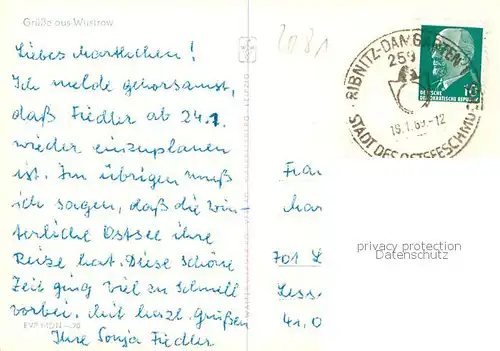 Grüße aus Wustrow
2081
Liebes Marthchen!
Ich melde gehorsamst,
daß Fiedler ab 24.1.
wieder einzuplanen
ist. Im übrigen muß
ich sagen, daß die win-
terliche Ostsee ihre
Reize hat. Diese schöne
Zeit ging viel zu schnell
vorbei. Mit herzl. Grüßen
Ihre Sonja Fiedler
RIBNITZ-DAMGARTEN
259
-12
STADT DES OSTSEESCHMUCKS
10
DEUTSCHE
DEMOKRATISCHE REPUBLIK
Frau
701 L
41, O
privacy protection
Wähnert-Datenschutz